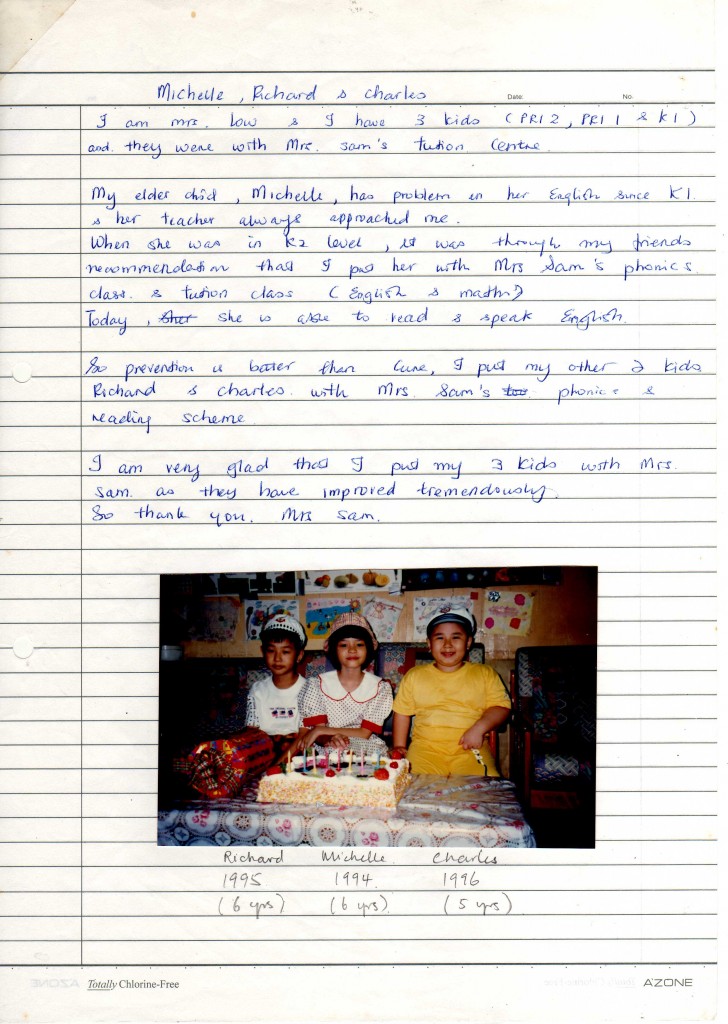 Michelle, Richard & Charles
Date: No.
I am Mrs. Low & I have 3 kids (PRI 2, PRI 1 & K1)
and. they were with Mrs. Sam's tution Centre.
My elder child, Michelle, has problem in her English since K1.
& her teacher always approached me.
When she was in K2 level, it was through my friends
recommendation that I put her with Mrs Sam's phonics
class. & tution class (English & maths)
Today, she is able to read & speak English.
So prevention is better than cure, I put my other 2 kids
Richard & Charles. with Mrs. Sam's phonics &
reading scheme.
I am very glad that I put my 3 kids with Mrs.
Sam. as they have improved tremendously.
So thank you. Mrs Sam.
Richard Michelle. Charles
1995 1994. 1996
(6 yrs) (6 yrs) (5 yrs)
Totally Chlorine-Free
A'ZONE